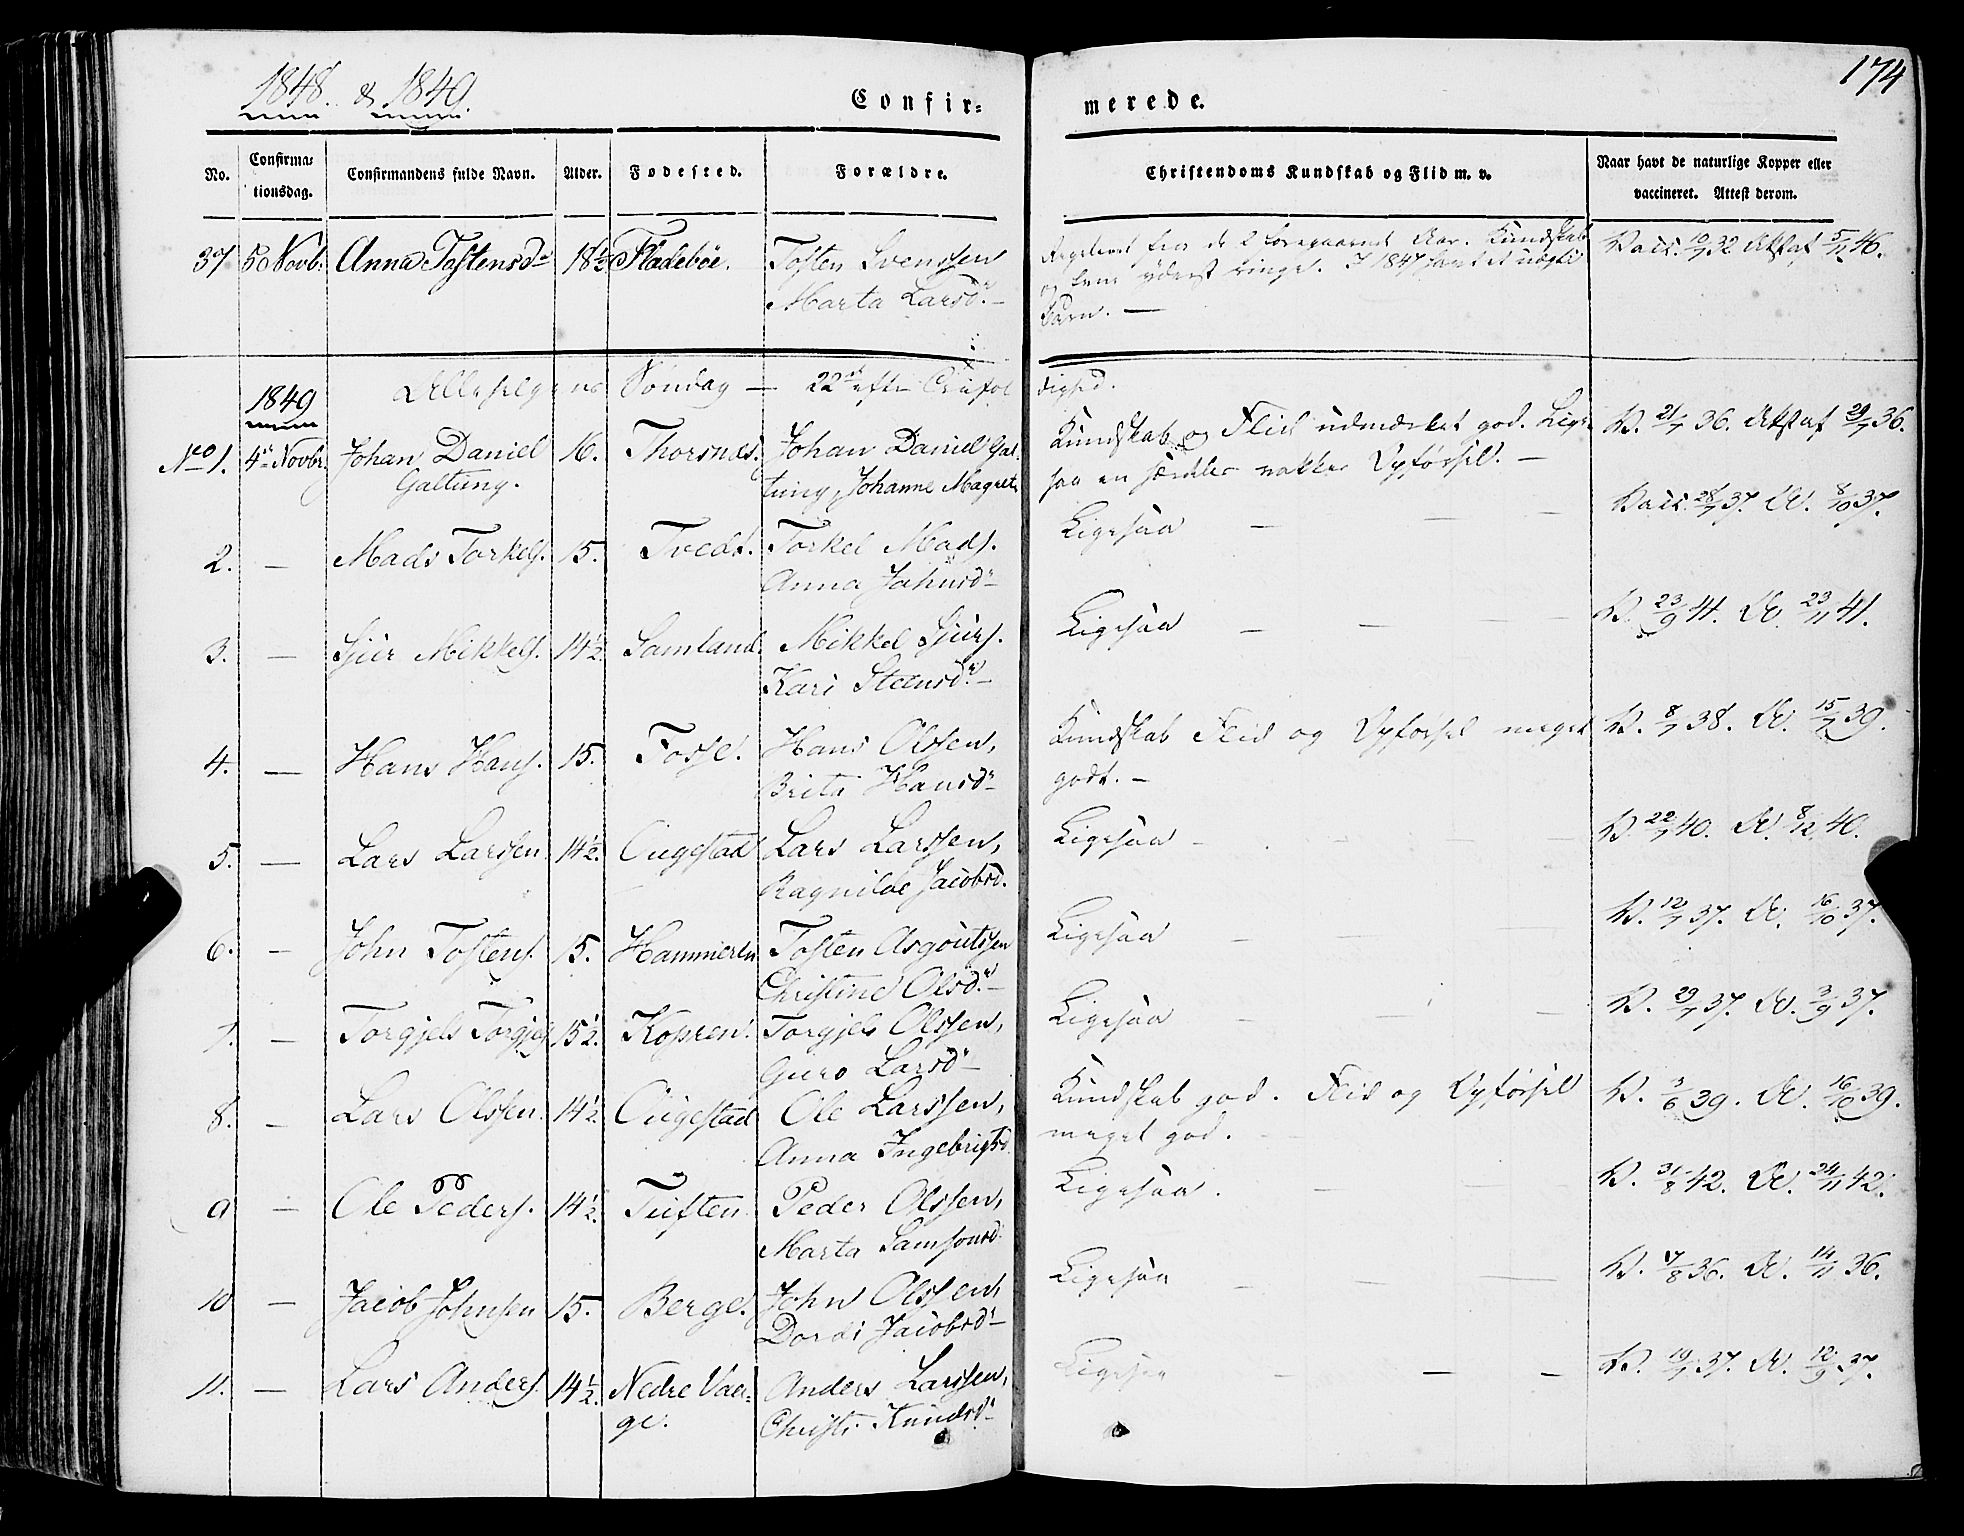 174
1848. & 1849.
Confir=
merede.
No.
Confirma=
tionsdag.
Confirmandens fulde Navn.
Alder.
Fodested.
Forældre.
Christendoms Kundskab og Flid m. v.
Naar havt de naturlige Kopper eller
vaccineret. Attest derom.
37 5 Novb: Anna Tostensdr 18½ Fladebøe. Tosten Svendsen
Marta Larsdr
de 2 foregaaende Aar. Kundskab
og yderst ringe. I 1847
Barn. —
Vacc. 10/7 32 Attst af 5/11 46.
1849
Søndag — 22de eftr Trinit
No 1. 4de Novbr. Johan Daniel
Galtung.
16. Thorsnæs. Johan Daniel Gal=
tung, Johanne Magrete
Kundskab og Flid udmærket god. Lige
saa en særdeles vakker Opførsel. —
V. 21/7 36. Attst af 29/7 36.
2. — Mads Torkels. 15. Tvedt. Torkel Mads.
Anna Johnsdr
Ligesaa — — —
Vacc. 28/7 37. A. 8/10 37.
3. — Sjur Mikkels. 14½. Samland. Mikkel Sjurs.
Kari Steensdr
Ligesaa — — — —
V. 23/9 41. A. 23/11 41.
4. — Hans Hans. 15. Fosse. Hans Olssen,
Brita Hansdr
Kundskab Flid og Opførsel meget
godt. —
V. 8/7 38. A. 15/7 39.
5. — Lars Larssen 14½. Augestad Lars Larssen,
Ragnilde Jacobsd.
Ligesaa —
V. 22/7 40. A. 8/12 40.
6. — John Tostens. 15. Hammeren Tosten Asgoutssen
Christine Olsdr.
Ligesaa —
V. 12/7 37. A. 16/10 37.
7. — Torgjels Torgjels 15½. Kopren. Torgjels Olssen,
Guro Larsdr
Ligesaa —
V. 29/7 37. A. 3/9 37.
8. — Lars Olssen. 14½ Augestad Ole Larssen,
Anna Ingebrigtsd.
Kundskab god. Flid og Opførsel
meget god.
V. 3/6 39. A. 16/10 39.
9 — Ole Peders. 14½. Tuften Peder Olssen,
Marta Samsonsd.
Ligesaa.
V. 31/8 42. A. 24/11 42.
10 — Jacob Johnsen 15. Berge. John Olssen,
Dordi Jacobsdr
Ligesaa —
V. 17/8 36. A. 14/11 36.
11. — Lars Anders. 14½. Nedre Vaa=
ge.
Anders Larssen,
Christi Knudsdr
Ligesaa — — —
V. 19/7 37. A. 12/9 37.